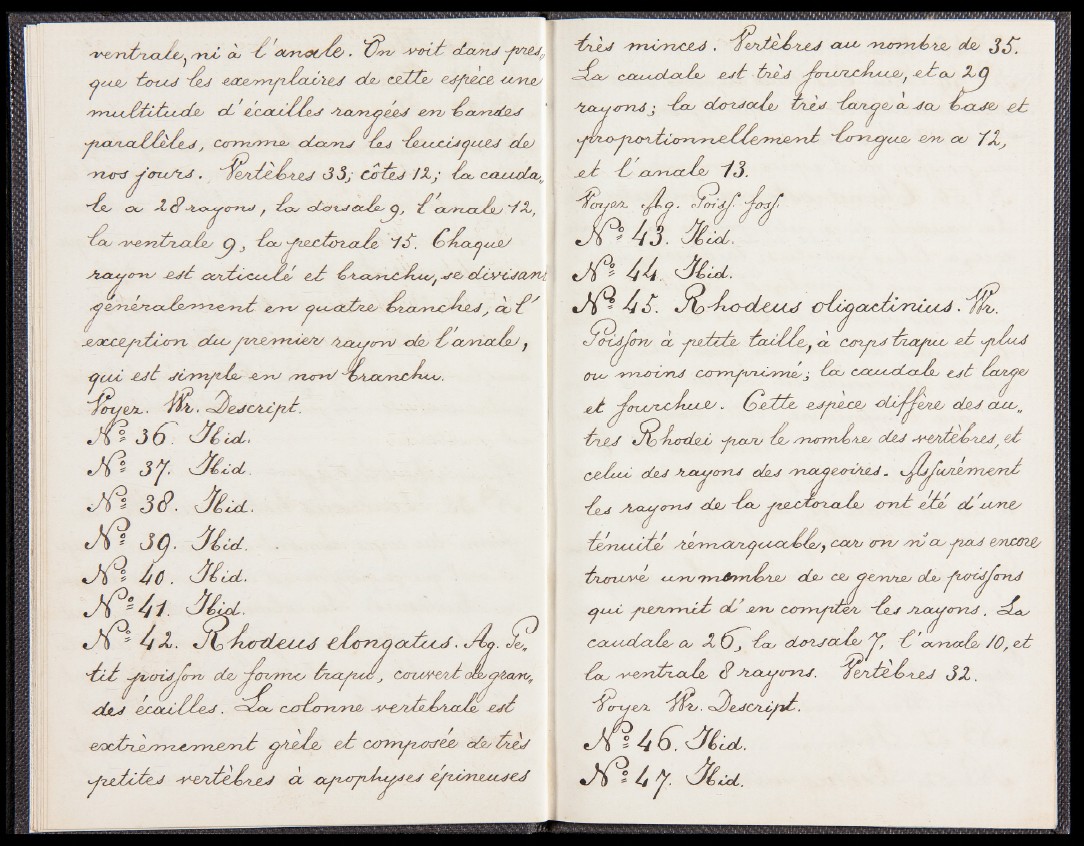 ventrale, ni à l'anale. On voit dans pres„
que tous les exemplaires de cette espèce une
multitude d'écailles rangées en bandes
parallèles, comme dans les leucisques de
nos jours. Vertèbres 33; côtes 12; la cauda„
le a 28 rayons, la dorsale 9, l'anale 12,
la ventrale 9, la pectorale 15. Chaque
rayon est articulé et branchu, se divisant
généralement en quatre branches, à l'
exception du premier rayon de l'anale,
qui est simple en non branchu.
Voyez. Wr. Descript.
Nº 36. Ibid.
Nº 37. Ibid.
Nº 38. Ibid.
Nº 39. Ibid.
Nº 40. Ibid.
Nº 41. Ibid.
Nº 42. Rhodeus elongatus. Ag. Pe„
tit poisson de forme trapu, couvert de gran„
des écailles. La colonne vertebrale est
extrèmement grèle et composée de très
petites vertèbres à apophyses épineuses
très minces. Vertèbres au nombre de 35.
La caudale est très fourchue, et a 29
rayons; la dorsale très large à sa base et
proportionnellement longue en a 12,
et l'anale 13.
Voyez Ag. Poiss. foss.
Nº 43. Ibid.
Nº 44. Ibid.
Nº 45. Rhodeus oligactinius. Wr.
Poisson à petite taille, à corps trapu et plus
ou moins comprimé; la caudale est large
et fourchue. Cette espèce diffère des au„
tres Rhodei par le nombre des vertèbres, et
celui des rayons des nageoires. Assurément
les rayons de la pectorale ont été d'une
ténuité rémarquable, car on n'a pas encore
trouvé un membre de ce genre de poissons
qui permit d'en compter les rayons. La
caudale a 26, la dorsale 7, l'anale 10, et
la ventrale 8 rayons. Vertèbres 32.
Voyez Wr. Descript.
Nº 46. Ibid.
Nº 47. Ibid.